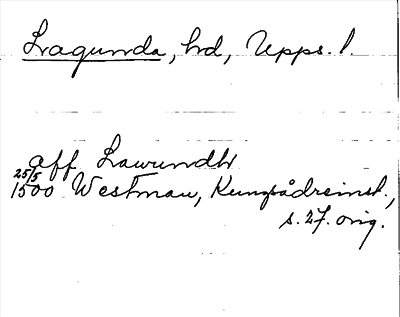 Lagunda, hd, Upps. l.
aff Lawundh
25/5
1500 Westman, Kungsådreinst.,
s. 27. orig.